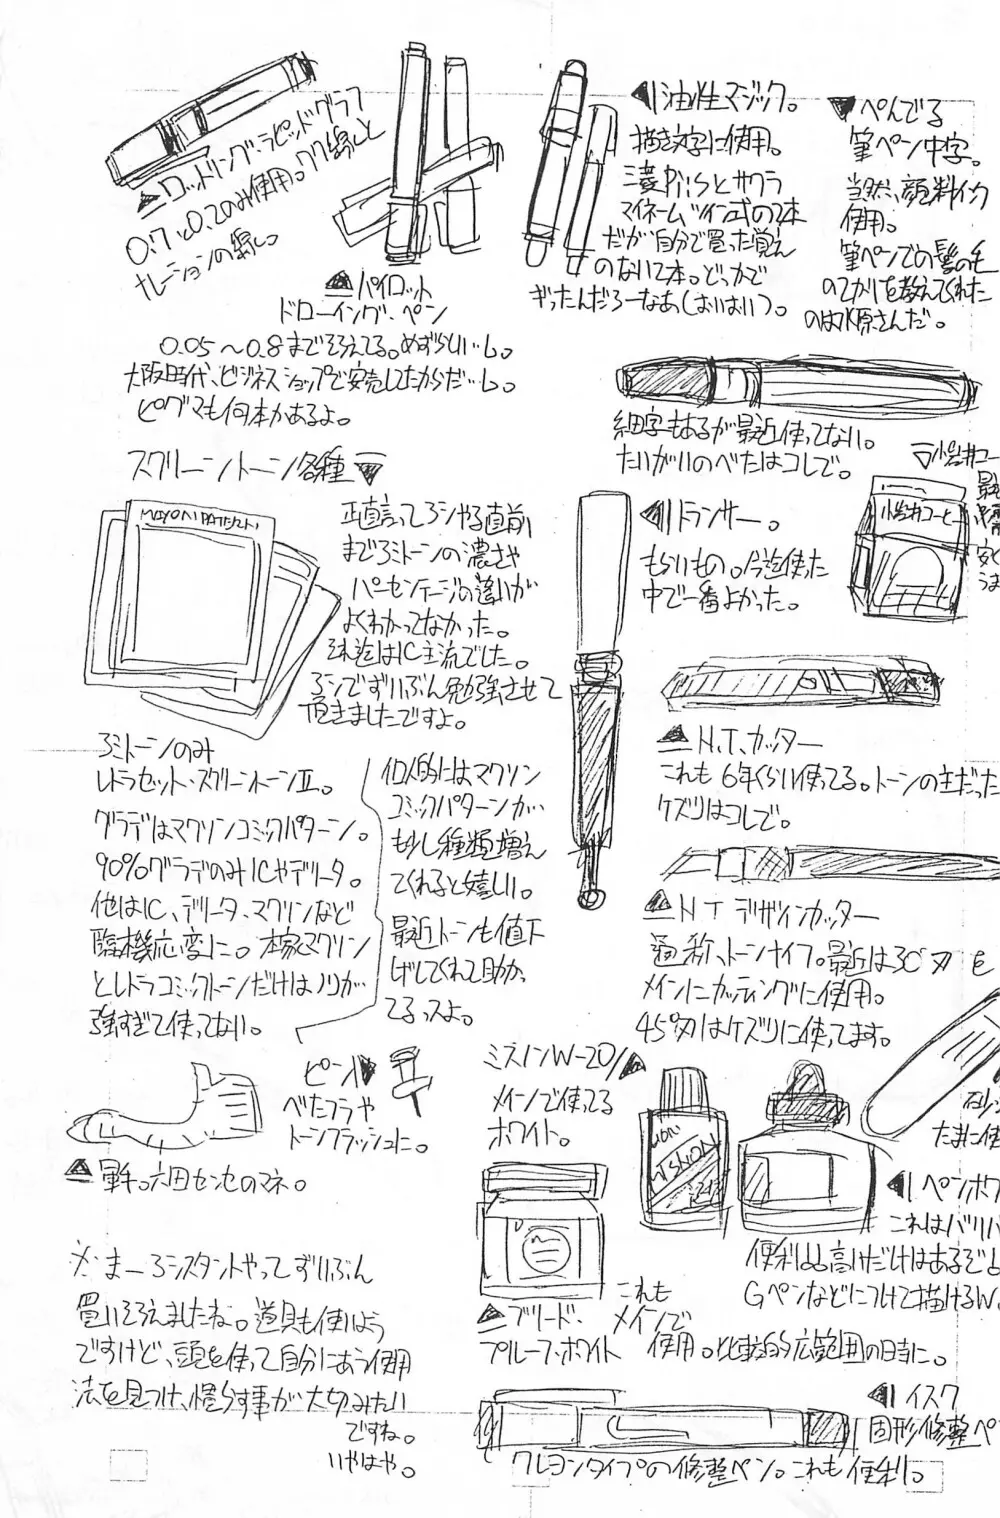 ▲ロットリング・ラピッドグラフ
0.7と0.2のみ使用。ワク線と
ナレーションの線し。
▲パイロット
ドローイング・ペン
0.05〜0.8までそろえてる。めずらしい…し。
大阪時代、ビジネスショップで安売してたからだ…し。
ピグマも何本かあるよ。
◀油性マジック。
描き文字に使用。
三菱Piisとサクラ
マイネームツイン式の2本
だが自分で買った覚え
のない2本。どっかで
ぎったんだろーなあ(おいおい)。
▼ぺんてる
筆ペン中字。
当然、顔料インク
使用。
筆ペンでの髪の毛
のてかりを教えてくれた
のは水原さんだ。
細字もあるが最近使ってない。
たいがいのべたはコレで。
スクリーントーン各種▼
MAXON PATTERN
正直言ってアシやる直前
までアミトーンの濃さや
パーセンテージの違いが
よくわかってなかった。
それ迄はIC主流でした。
アシでずいぶん勉強させて
頂きましたですよ。
◀トランサー。
もらいもの。今迄使った
中で一番よかった。
▽小岩井コー
小岩井コーヒー
最
安く
うま
アミトーンのみ
レトラセット・スクリーントーンⅡ。
グラデはマクソンコミックパターン。
90%グラデのみICやデリータ。
他はIC、デリータ、マクソンなど
臨機応変に。本家マクソン
とレトラコミックトーンだけはノリが
強すぎて使ってない。
個人的にはマクソン
コミックパターンが
も少し種類増え
てくれると嬉しい。
最近トーンも値下
げしてくれて助か
てるっスよ。
▲N.T.カッター
これも6年くらい使ってる。トーンの主だった
ケズリはコレで。
▲NTデザインカッター
通称、トーンナイフ。最近は30°刃を
メインにカッティングに使用。
45°刃はケズリに使ってます。
ピン▶
べたフラや
トーンフラッシュに。
▲軍手。六田センセのマネ。
ミズノンW-20▲
メインで使ってる
ホワイト。
MISNON
W-20
砂
たまに使
◀ペンホワ
これはバリバ
便利。高けだけはあるぞよ
Gペンなどにつけて描けるW。
▲ブリード・
プルーフ・ホワイト
これも
メインで
使用。比較的広範囲の時に。
※まーアシスタントやってずいぶん
買いそろえましたね。道具も使いよう
ですけど、頭を使って自分にあう使用
法を見つけ、慣らす事が大切みたい
ですね。
いやはや。
◀イスク
固形修整ペ
クレヨンタイプの修整ペン。これも便利。